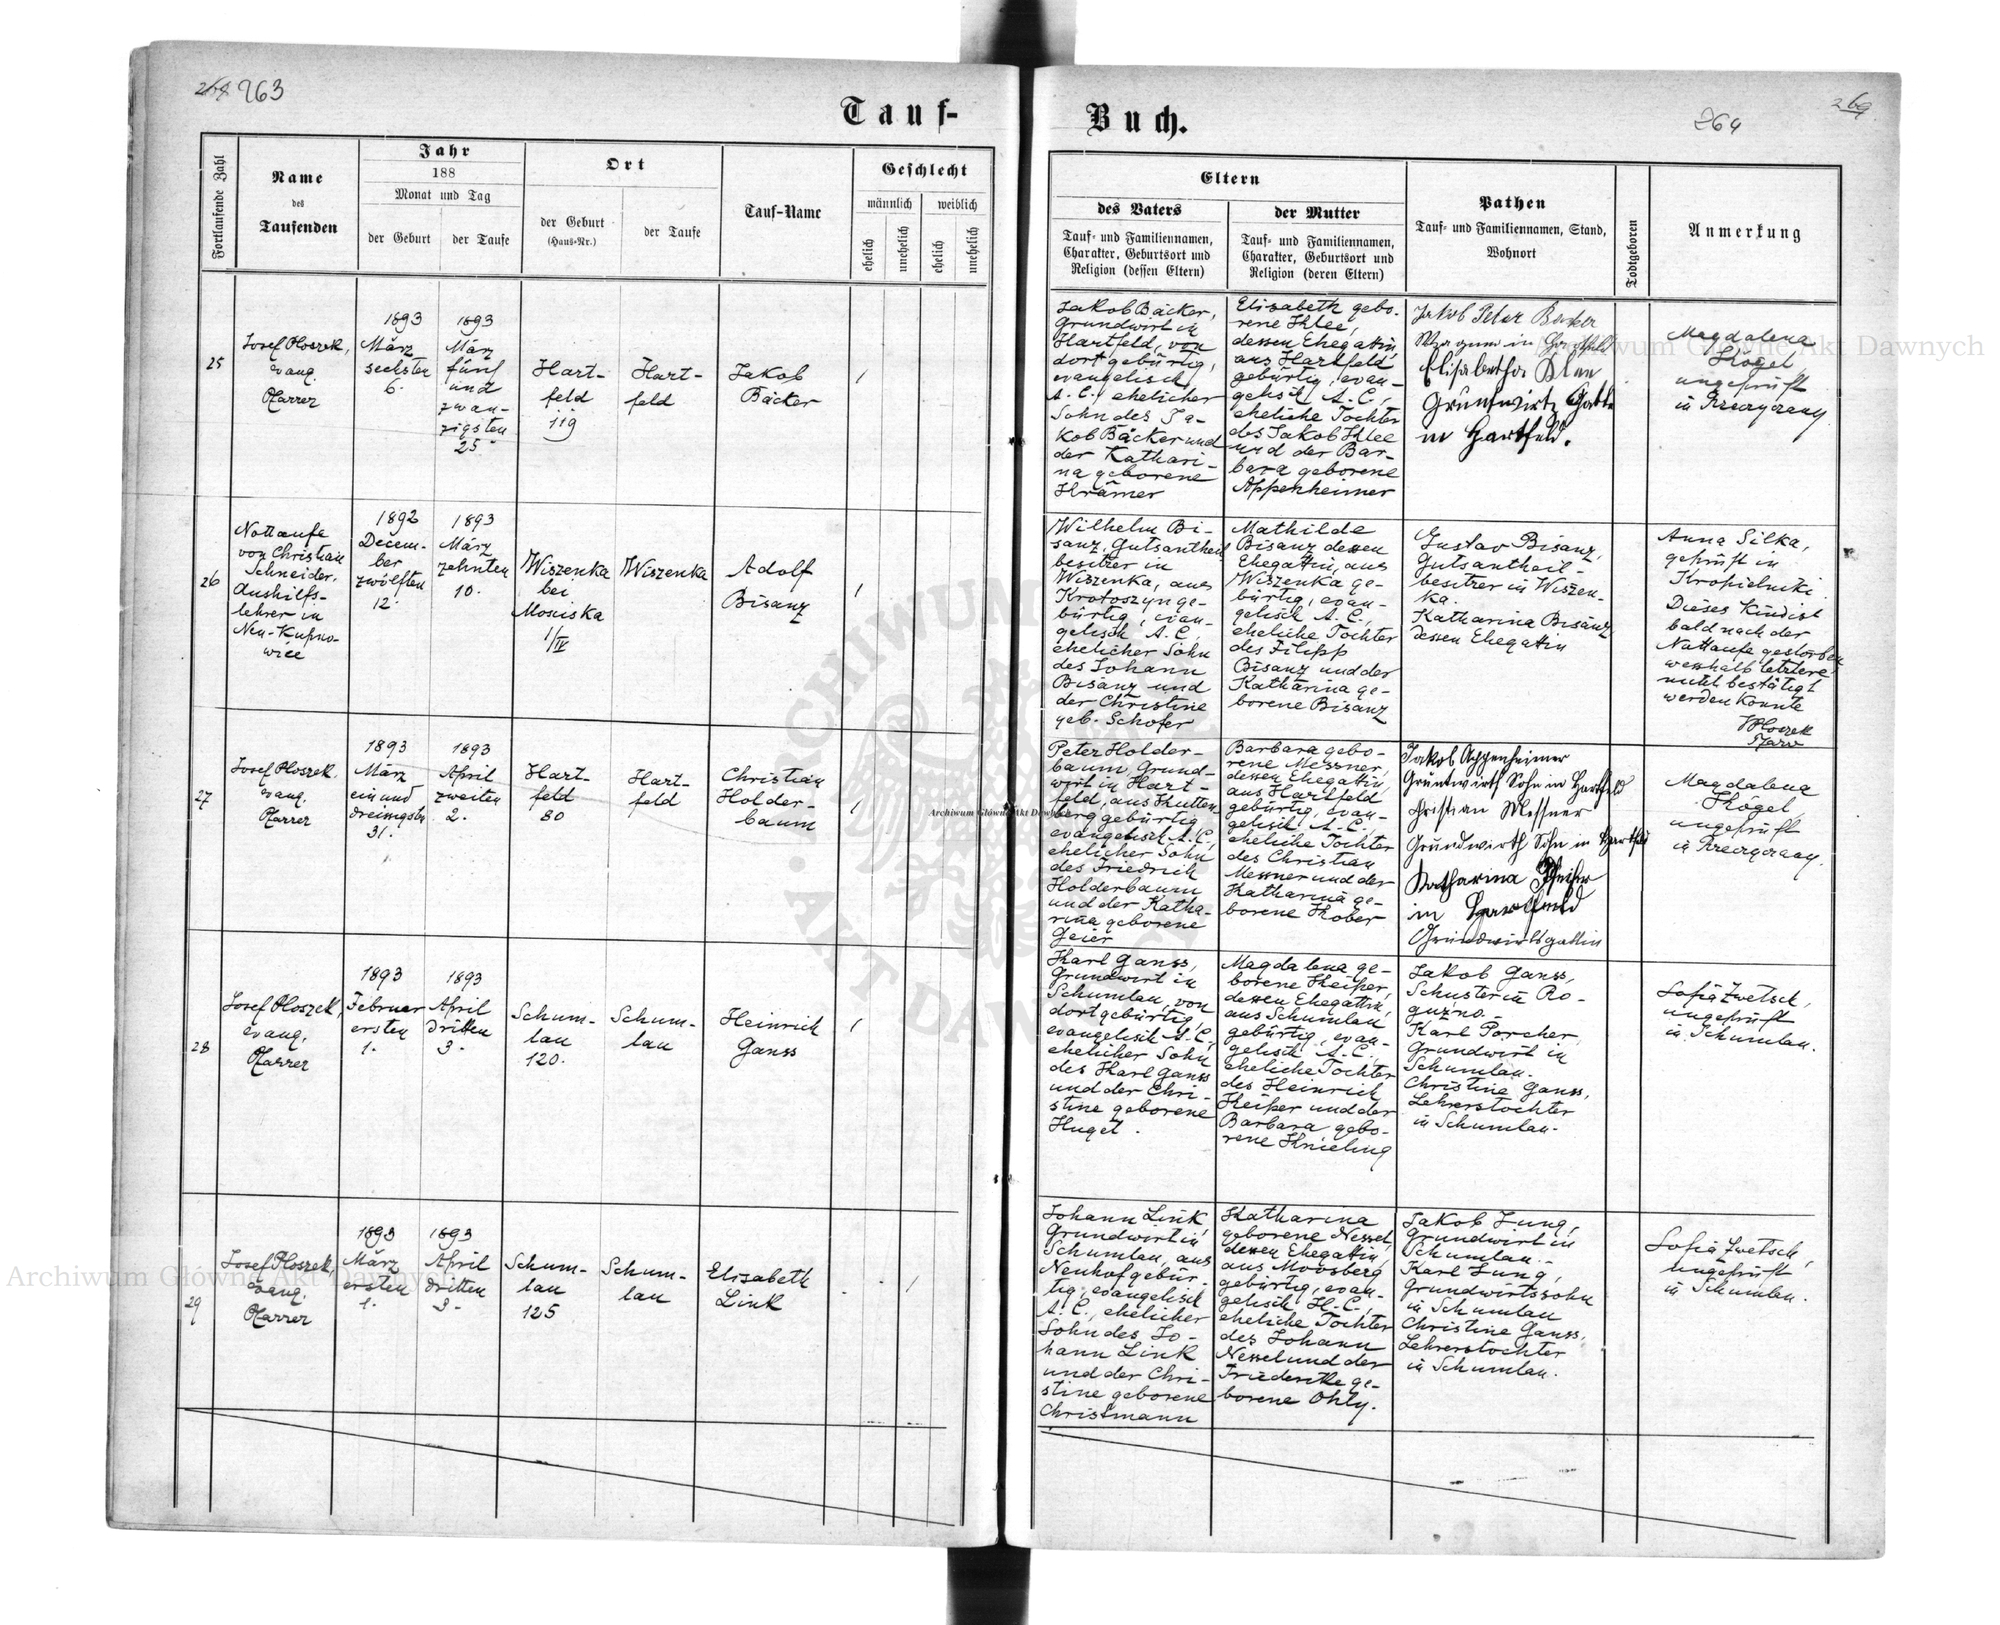 264 263
Tauf-
Buch.
264
269
Fortlaufende Zahl
Name
des
Taufenden
Jahr
188
Monat und Tag
der Geburt
der Taufe
Ort
der Geburt
(Haus-Nr.)
der Taufe
Tauf-Name
Geschlecht
männlich
weiblich
ehelich
unehelich
ehelich
unehelich
Eltern
des Vaters
Tauf- und Familiennamen,
Charakter, Geburtsort und
Religion (dessen Eltern)
der Mutter
Tauf- und Familiennamen,
Charakter, Geburtsort und
Religion (deren Eltern)
Pathen
Tauf- und Familiennamen, Stand,
Wohnort
Todtgeboren
Anmerkung
25
Josef Ploszek,
evang.
Pfarrer
1893
März
sechsten
6.
1893
März
fünf
und
zwan-
zigsten
25.
Hart-
feld
119
Hart-
feld
Jakob
Bäcker
/
Jakob Bäcker,
Grundwirt in
Hartfeld, von
dort gebürtig,
evangelisch
A. C., ehelicher
Sohn des Ja-
kob Bäcker und
der Kathari-
na geborene
Krämer
Elisabeth gebo-
rene Klee,
dessen Ehegattin,
aus Hartfeld
gebürtig, evan-
gelisch A. C.,
eheliche Tochter
des Jakob Klee
und der Bar-
bara geborene
Appenheimer
Jakob Peter Becker
in Hartfeld
Elisabetha Klee
Grundwirtz Gattin
in Hartfeld.
Magdalena
Kogel
ungeprüft
in
26
Nottaufe
von Christian
Schneider,
Aushilfs-
lehrer in
Neu-Kupno-
wice
1892
Decem-
ber
zwölften
12.
1893
März
zehnten
10.
Wiszenka
bei
Mosciska
1/IV
Wiszenka
Adolf
Bisanz
/
Wilhelm Bi-
sanz, Gutsantheil
besitzer in
Wiszenka, aus
Krotoszyn ge-
bürtig, evan-
gelisch A. C.,
ehelicher Sohn
des Johann
Bisanz und
der Christine
geb. Schofer
Mathilde
Bisanz dessen
Ehegattin, aus
Wiszenka ge-
bürtig, evan-
gelisch A. C.,
eheliche Tochter
des Filipp
Bisanz und der
Katharina ge-
borene Bisanz
Gustav Bisanz,
Gutsantheil-
besitzer in Wiszen-
ka.
Katharina Bisanz,
dessen Ehegattin
Anna Silka,
geprüft in
Kropielniki.
Dieses Kind ist
bald nach der
Nottaufe gestorben
wesshalb letztere
nicht bestätigt
werden konnte
Ploszek
Pfarr
27
Josef Ploszek,
evang.
Pfarrer
1893
März
ein und
dreissigsten
31.
1893
April
zweiten
2.
Hart-
feld
80
Hart-
feld
Christian
Holder-
baum
/
Peter Holder-
baum, Grund-
wirt in Hart-
feld, aus Kutten
berg gebürtig,
evangelisch A. C.,
ehelicher Sohn
des Friedrich
Holderbaum
und der Katha-
rina geborene
Geier
Barbara gebo-
rene Messner,
dessen Ehegattin,
aus Hartfeld
gebürtig, evan-
gelisch A. C.,
eheliche Tochter
des Christian
Messner und der
Katharina ge-
borene Kober
Jakob Appenheimer
Gruntwirth Sohn in Hartfeld
Christian Messner
Grundwirth Sohn in Hartfeld
Katharina
in Hartfeld
Grundwirtsgattin
Magdalena
Kogel
ungeprüft
in
28
Josef Ploszek,
evang.
Pfarrer
1893
Februar
ersten
1.
1893
April
dritten
3.
Schum-
lau
120.
Schum-
lau
Heinrich
Ganss
/
Karl Ganss,
Grundwirt in
Schumlau, von
dort gebürtig,
evangelisch A. C.,
ehelicher Sohn
des Karl Ganss
und der Chri-
stine geborene
Hugel.
Magdalena ge-
borene Keiper,
dessen Ehegattin,
aus Schumlau
gebürtig, evan-
gelisch A. C.,
eheliche Tochter
des Heinrich
Keiper und der
Barbara gebo-
rene Knieling
Jakob Ganss,
Schuster in Ro-
guzno.-
Karl Porcher,
Grundwirt in
Schumlau.
Christine Ganss,
Lehrerstochter
in Schumlau.
Sofia Zwetsch,
ungeprüft
in Schumlau.
29
Josef Ploszek,
evang.
Pfarrer
1893
März
ersten
1.
1893
April
dritten
3.
Schum-
lau
125
Schum-
lau
Elisabeth
Link
/
Johann Link,
Grundwirt in
Schumlau, aus
Neuhof gebür-
tig, evangelisch
A. C., ehelicher
Sohn des Jo-
hann Link
und der Chri-
stine geborene
Christmann
Katharina
geborene Nessel,
dessen Ehegattin,
aus Moosberg
gebürtig, evan-
gelisch H. C.,
eheliche Tochter
des Johann
Nessel und der
Friederike ge-
borene Ohly.
Jakob Jung,
Grundwirt in
Schumlau.-
Karl Jung,
Grundwirtssohn
in Schumlau
Christine Ganss,
Lehrerstochter
in Schumlau.
Sofia Zwetsch,
ungeprüft
in Schumlau.
Archiwum Główne Akt Dawnych
Archiwum Główne Akt Dawnych
Archiwum Główne Akt Dawnych
ARCHIWUM
AKT DAWNYCH